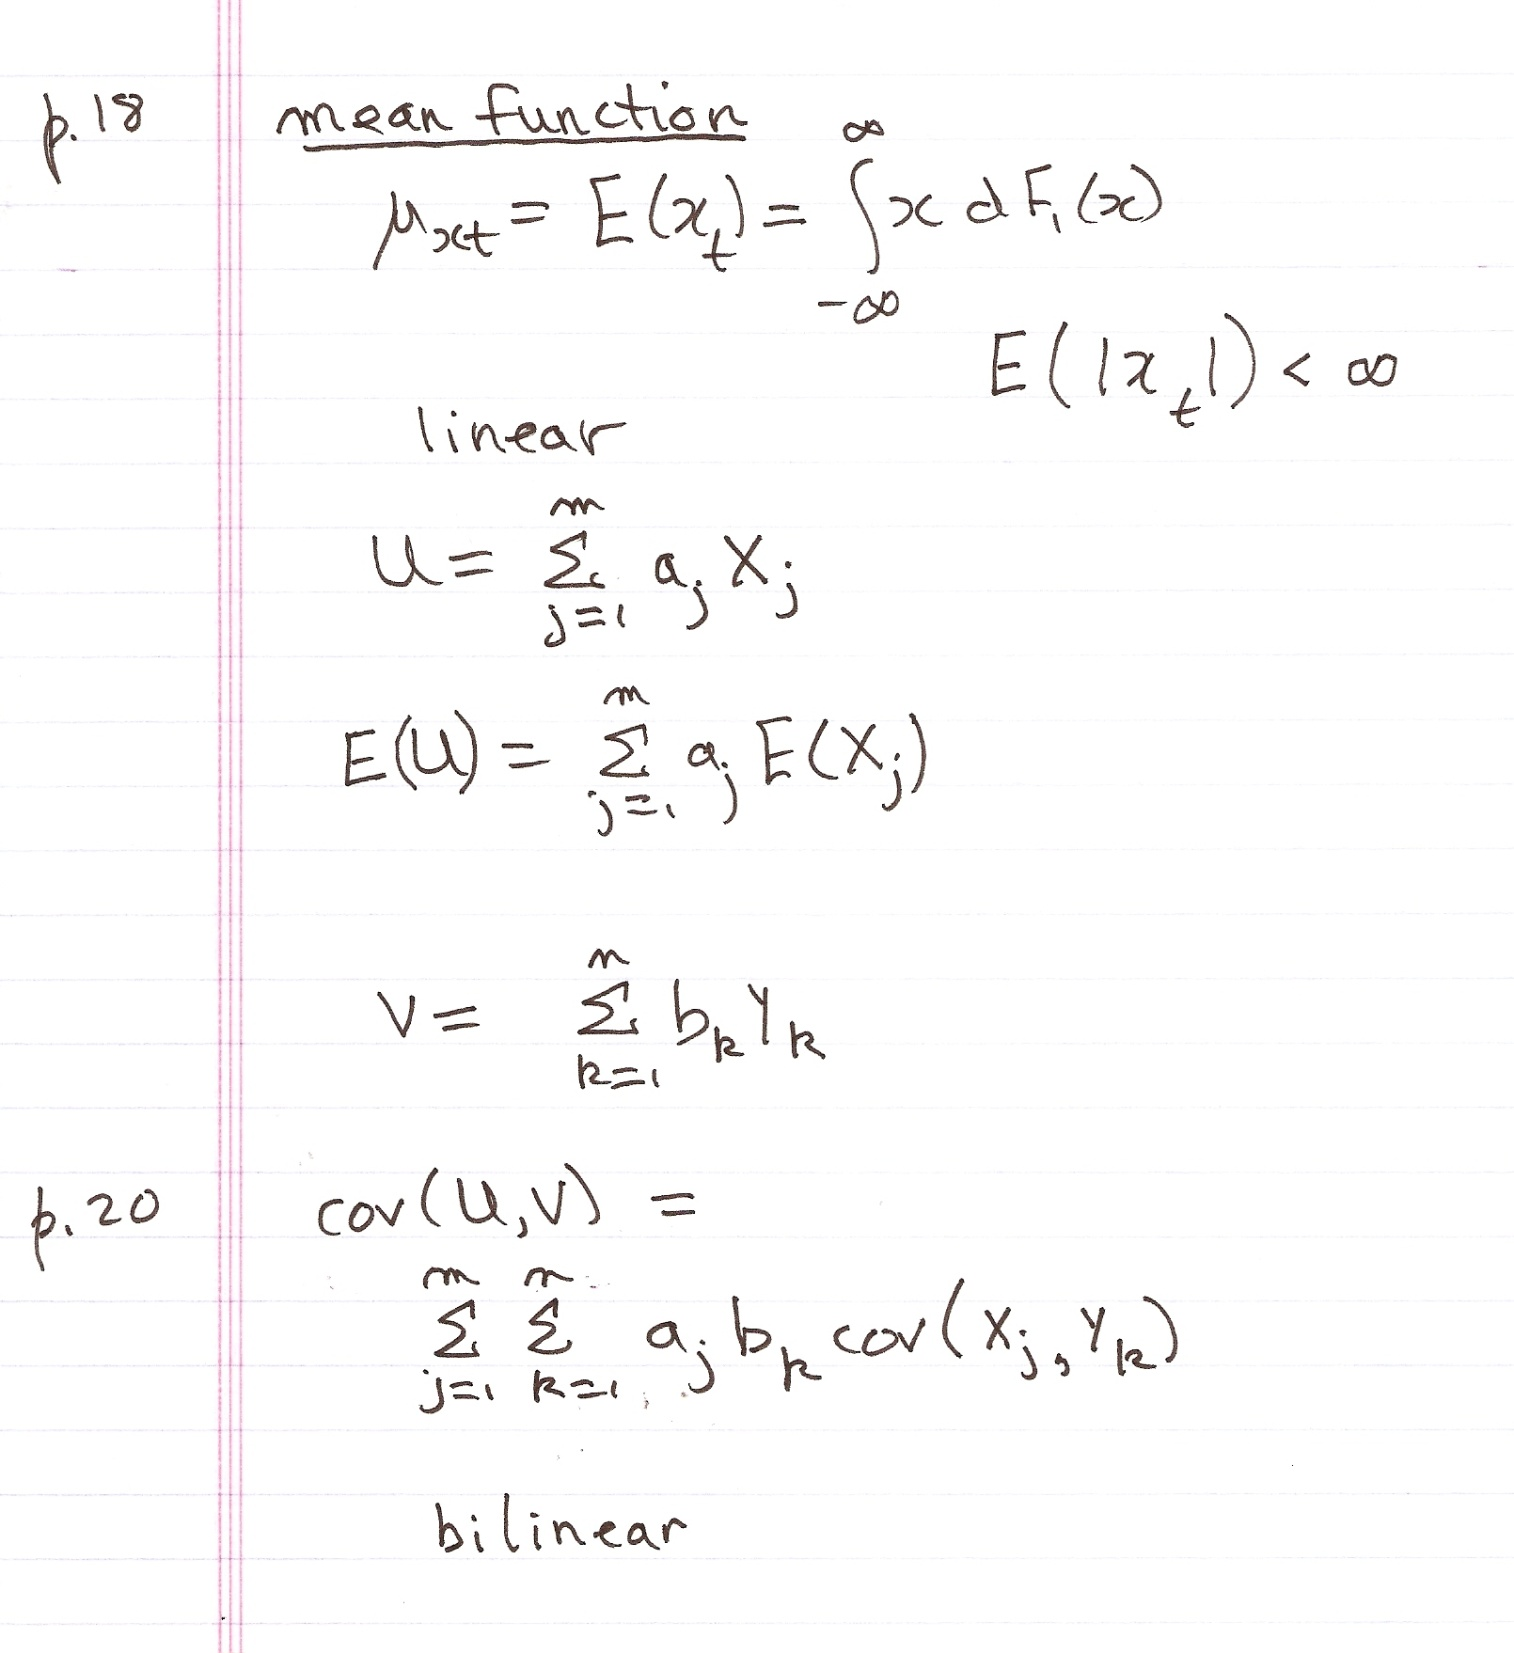 p.18 mean function
μ_xt = E(x_t) = ∫_{-∞}^{∞} x dF_1(x)
E(|x_t|) < ∞
linear
U = Σ_{j=1}^{m} a_j X_j
E(U) = Σ_{j=1}^{m} a_j E(X_j)
V = Σ_{k=1}^{n} b_k Y_k
p.20 cov(U,V) =
Σ_{j=1}^{m} Σ_{k=1}^{n} a_j b_k cov(X_j, Y_k)
bilinear